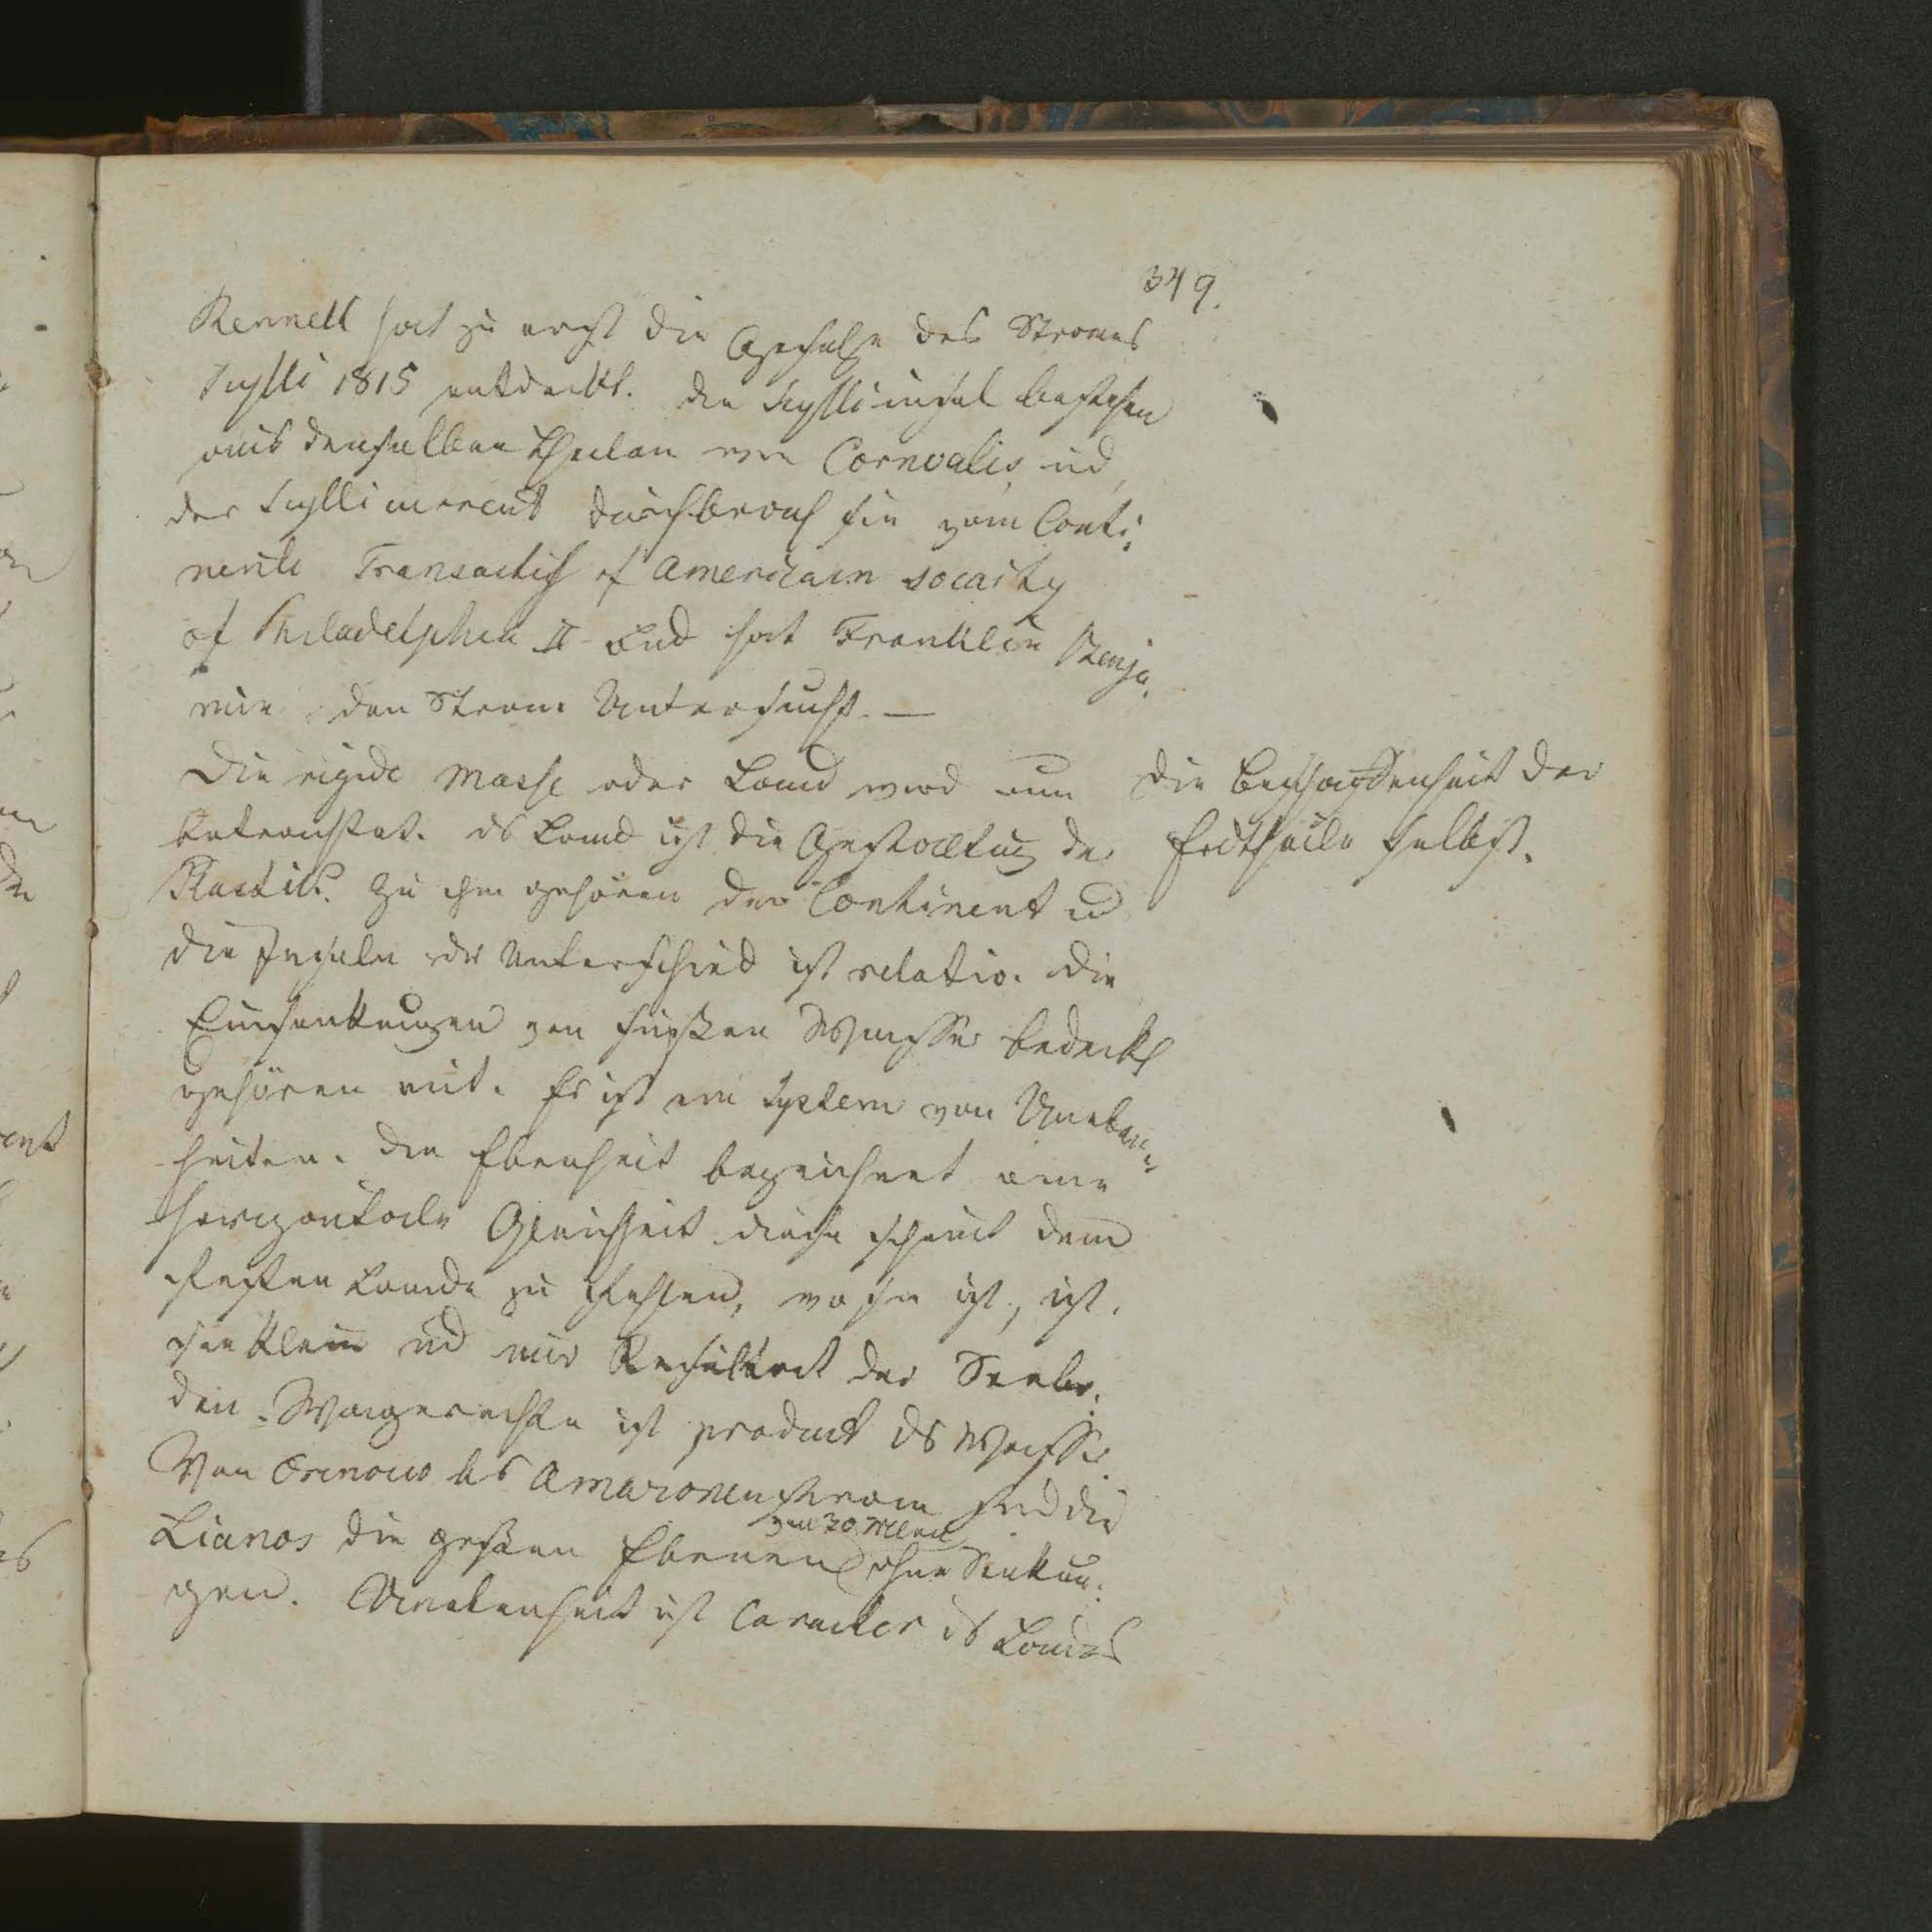 349.
Rennell hat zu erst die Geschichte des Stromes
Scylli 1815 entdeckt. Die Scylliinseln bestehen
aus denselben Theilen wie Cornwalis ud
der Scylli current durchbrach sie vom Conti¬
nente Transactish of American society
of Philadelphia II Bnd hat Franklin Benja¬
min den Strom Untersucht. —
Die rigide Masse oder Land wird nun
betrachtet. ds Land ist die Gestaltug des
zu ihm gehören der Continent ud
die Inseln der Unterschied ist relativ. die
Einsenkungen von süßen Wasser bedeckt
gehören mit. Es ist ein System von Uneben¬
heiten. Die Ebenheit bezeichnet eine
horizontale Gleichheit diese scheint dem
festen Lande zu fehlen, wo sie ist, ist
sie klein ud nur Resultat der
den Wagerechte ist product ds Wassers
Von Orinoco bis Amazonenstrom sind die
von 30 Meilen
Lianos die großen Ebenen ohne Senkun¬
gen. Unebenheit ist Caracter ds Landes
Die Beschaffenheit der
Erdtheile selbst.